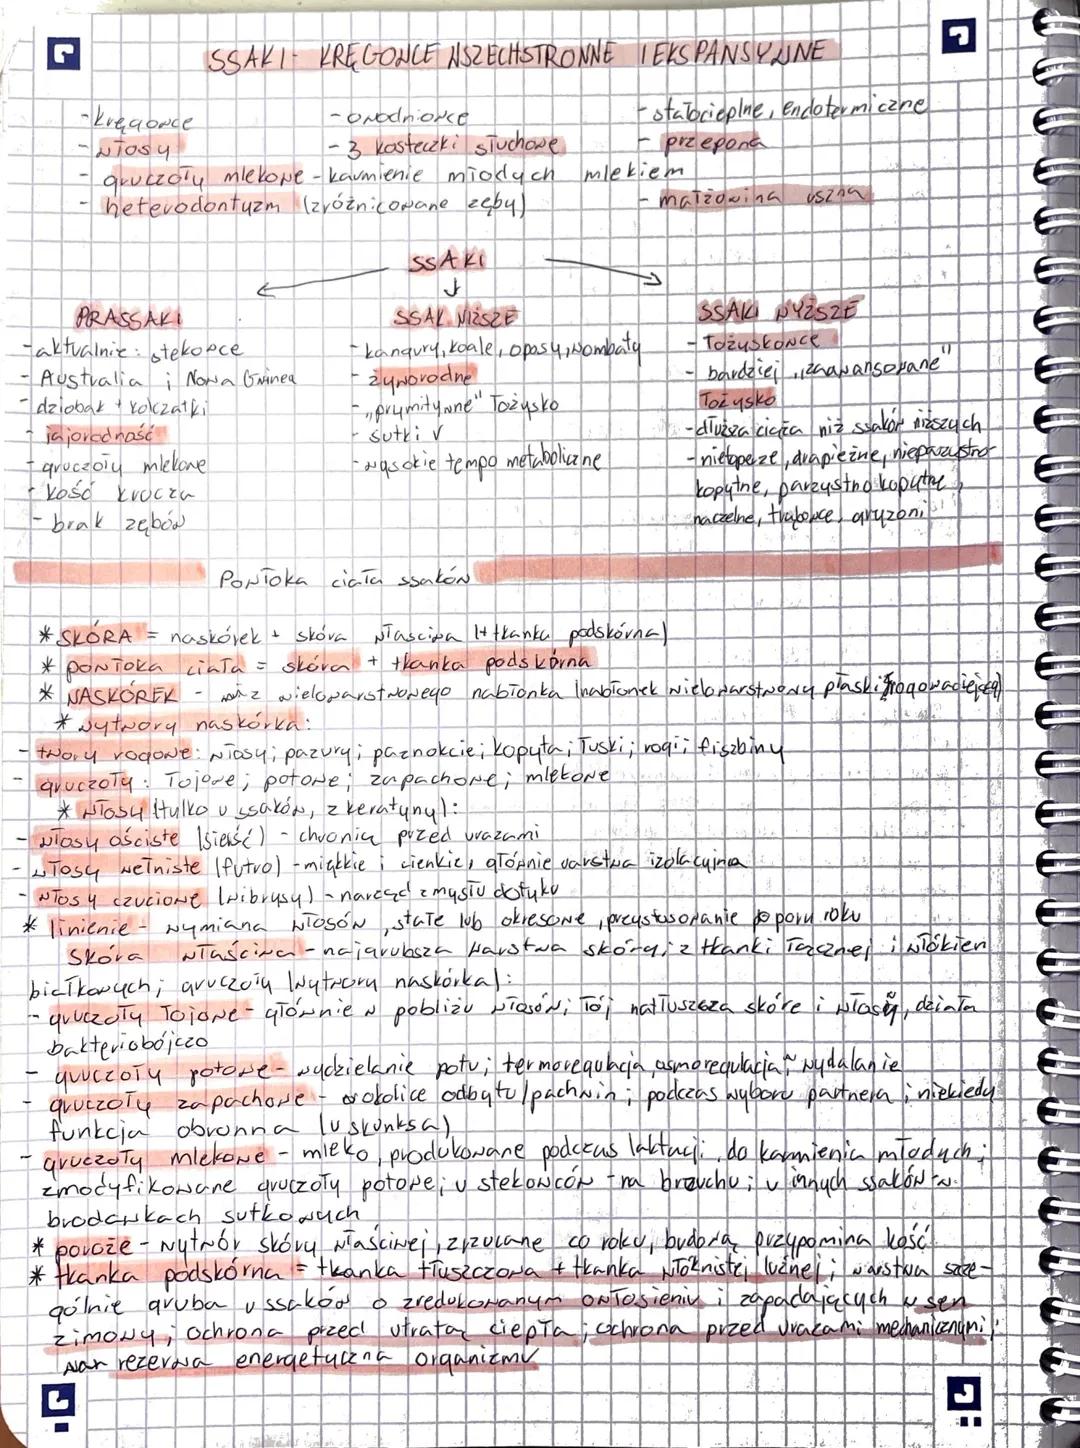 SSAKI - KRĘGOWCE WSZECHSTRONNE I EKSPANSYWNE
- kręgowce - owodniowce - stałocieplne, endotermiczne
- włosy - 3 kosteczki słuchowe - przepona
- gruczoły mlekowe - karmienie młodych mlekiem
- heterodontyzm (zróżnicowane zęby) - małżowina uszna
SSAKI
PRASSAKI
- aktualnie: stekowce
- Australia i Nowa Gwinea
- dziobak + kolczatki
- jajorodność
- gruczoły mlekowe
- kość krucza
- brak zębów
SSAKI NIŻSZE
- kangury, koale, oposy, wombaty
- żyworodne
- „prymitywne" łożysko
- sutki V
- wysokie tempo metaboliczne
SSAKI WYŻSZE
- łożyskowce
- bardziej „zaawansowane"
łożysko
- dłuższa ciąża niż ssaków niższych
- nietoperze, drapieżne, nieparzysto-
kopytne, parzystnokopytne,
naczelne, trąbowce, gryzoni
Powłoka ciała ssaków
* SKÓRA = naskórek + skóra właściwa (+ tkanka podskórna)
* powłoka ciała = skóra + tkanka podskórna
* NASKÓREK - z wielowarstwowego nabłonka (nabłonek wielowarstwowy płaski rogowaciejący)
* wytwory naskórka:
- twory rogowe: włosy; pazury; paznokcie; kopyta; łuski; rogi; fiszbiny
- gruczoły: łojowe; potowe; zapachowe; mlekowe
* włosy (tylko u ssaków, z keratyny):
- włosy ościste (sierść) - chronią przed urazami
- włosy wełniste (futro) - miękkie i cienkie, głównie warstwa izolacyjna
- włosy czuciowe (wibrysy) - narząd zmysłu dotyku
* linienie - wymiana włosów, stałe lub okresowe, przystosowanie do poru roku
skóra właściwa - najgrubsza warstwa skóry; z tkanki łącznej i włókien
białkowych; gruczoły (wytwory naskórka):
- gruczoły łojowe - głównie w pobliżu włosów; łój natłuszcza skóre i włosy, działa
bakteriobójczo
- gruczoły potowe - wydzielanie potu; termoregulacja, osmoregulacja, wydalanie
- gruczoły zapachowe - okolice odbytu/pachwin; podczas wyboru partnera; niekiedy
funkcja obronna (u skunksa)
- gruczoły mlekowe - mleko, produkowane podczas laktacji, do karmienia młodych;
zmodyfikowane gruczoły potowe; u stekowców - na brzuchu; u innych ssaków - w
brodawkach sutkowych
* poroże - wytwór skóry właściwej, zrzucane co roku, budową przypomina kość
* tkanka podskórna = tkanka tłuszczowa + tkanka włóknistej luźnej; warstwa szcze-
gólnie gruba u ssaków o zredukowanym owłosieniu i zapadających w sen
zimowy; ochrona przed utratą ciepła; ochrona przed urazami mechanicznymi;
rezerwa energetyczna organizmu